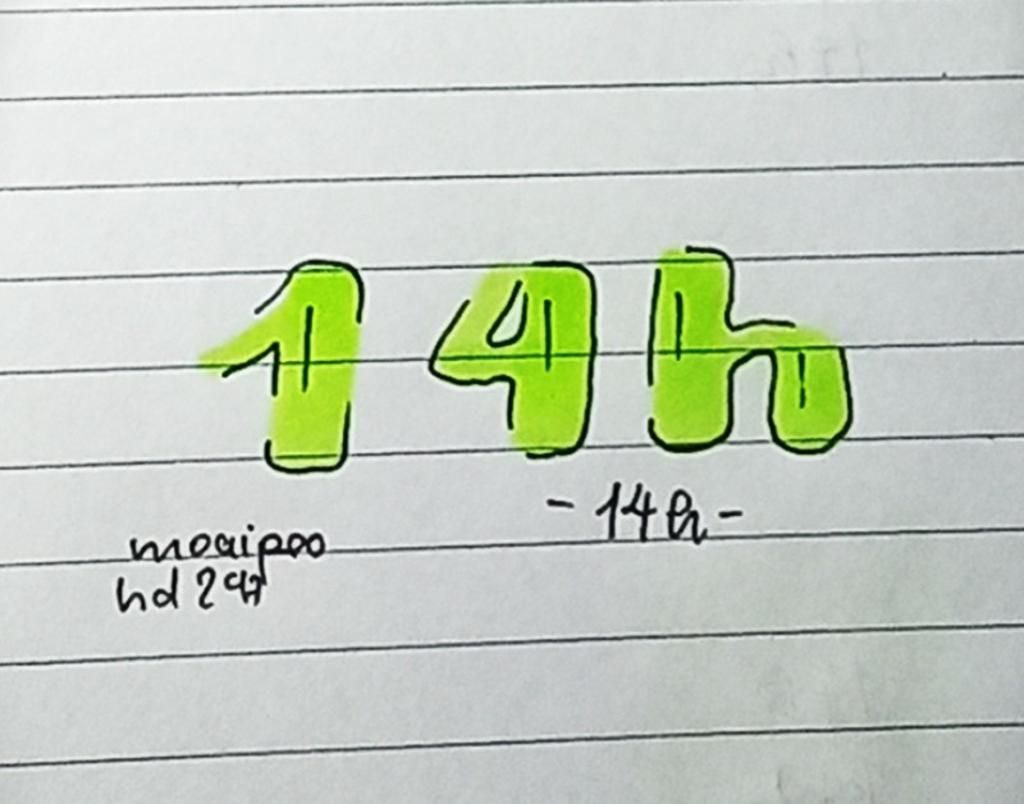 14h
- 14h -
moaipoo
hd 247